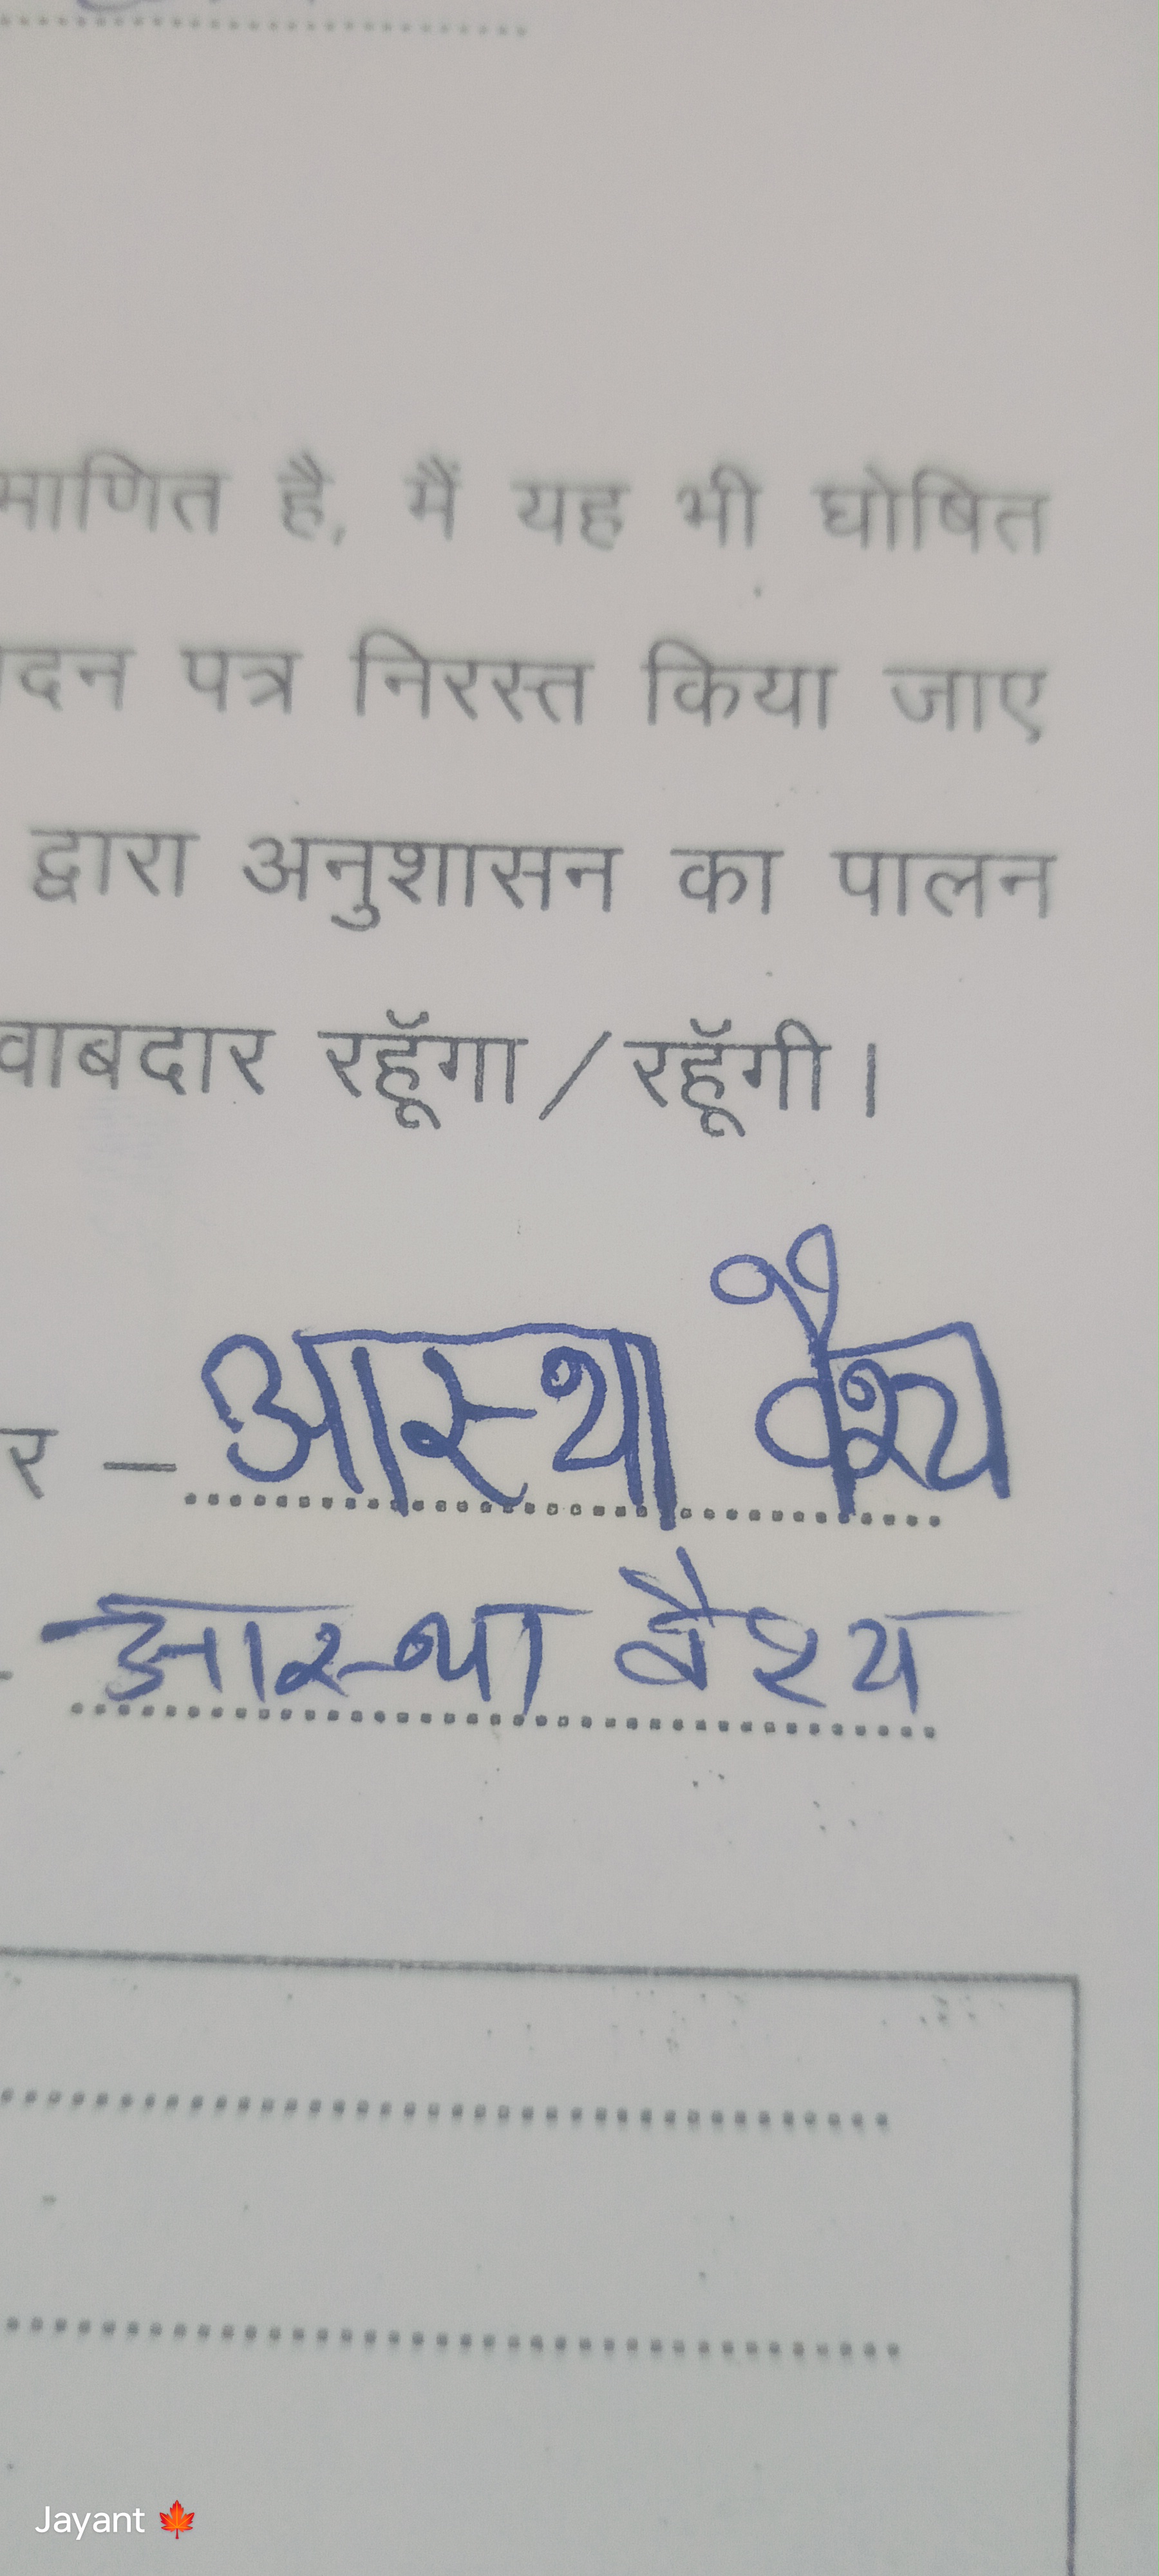 माणित है, मैं यह भी घोषित
दन पत्र निरस्त किया जाए
द्वारा अनुशासन का पालन
वाबदार रहूँगा/रहूँगी।
र – आस्था वैश्य
आस्था वैश्य
Jayant 🍁